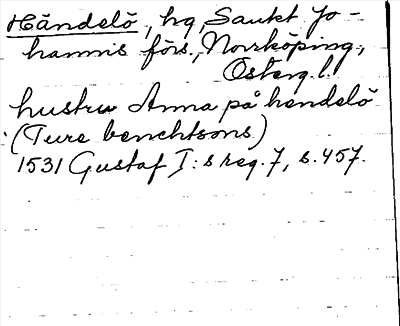 Händelö, hg, Sankt Jo-
hannis förs., Norrköping,
Österg. l.
hustru Anna på hendelö
(Ture benchtsons)
1531 Gustaf I:s reg. 7, s. 457.